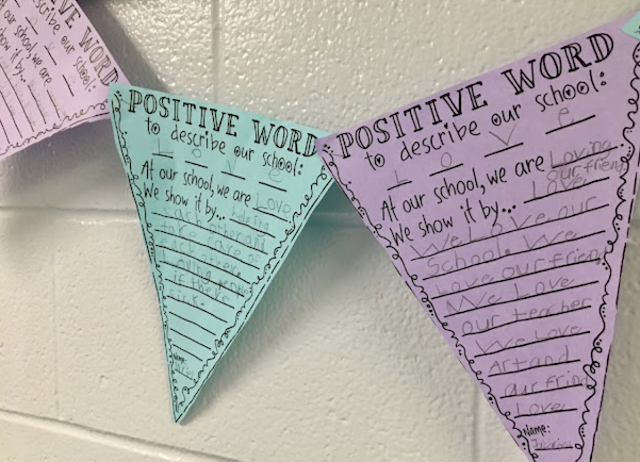 describe our
At our school, we are
show it by...
POSITIVE WORD
to describe our school:
L o v e
At our school, we are Love
We show it by... helping
each other and
take care of
each other
Loving
if there
sick.
Name:
POSITIVE WORD
to describe our school:
L o v e
At our school, we are Loving
our friend
We show it by... Love
We Love our
School. We
Love our friend
We Love
our teacher
We Love
Art and
our frind
Love
Name: